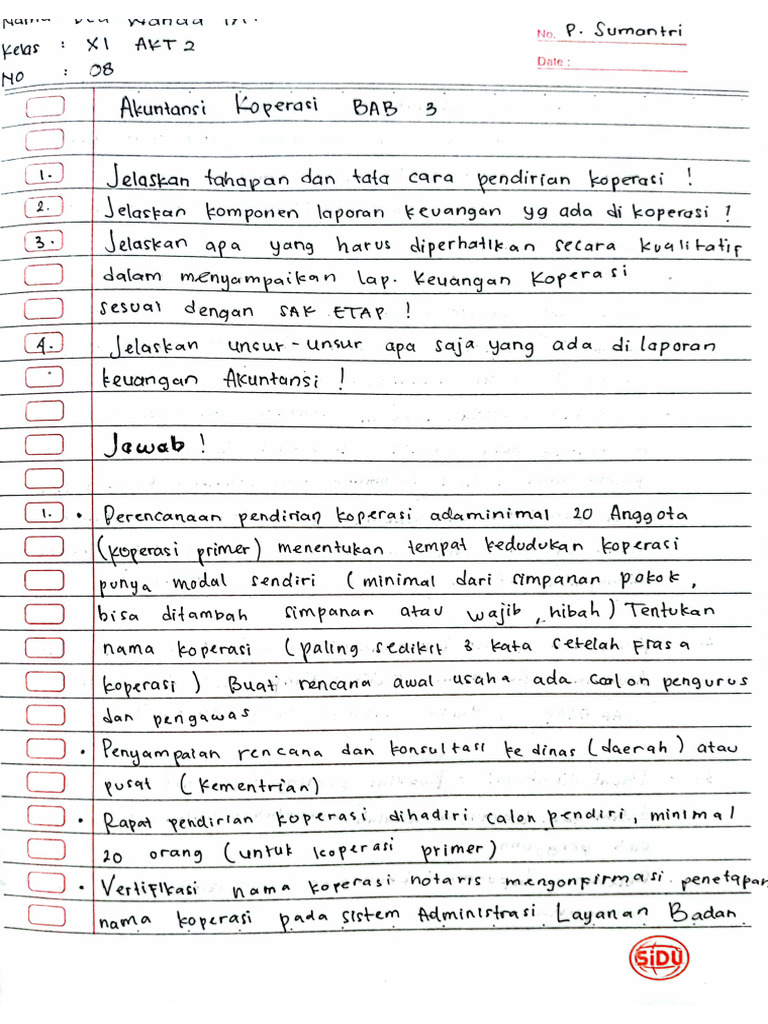 Kelas : XI AKT 2
No : 08
No. P. Sumantri
Date :
Akuntansi Koperasi BAB 3
1. Jelaskan tahapan dan tata cara pendirian koperasi !
2. Jelaskan komponen laporan keuangan yg ada di koperasi !
3. Jelaskan apa yang harus diperhatikan secara kualitatif
dalam menyampaikan lap. Keuangan Koperasi
sesuai dengan SAK ETAP !
4. Jelaskan unsur-unsur apa saja yang ada di laporan
keuangan Akuntansi !
Jawab !
1. • Perencanaan pendirian koperasi adaminimal 20 Anggota
(koperasi primer) menentukan tempat kedudukan koperasi
punya modal sendiri (minimal dari simpanan pokok,
bisa ditambah simpanan atau wajib, hibah) Tentukan
nama koperasi (paling sedikit 3 kata setelah frasa
koperasi) Buat rencana awal usaha ada calon pengurus
dan pengawas
• Penyampaian rencana dan konsultasi ke dinas (daerah) atau
pusat (kementrian)
• Rapat pendirian koperasi dihadiri calon pendiri, minimal
20 orang (untuk koperasi primer)
• Vertifikasi nama koperasi notaris mengonfirmasi penetapan
nama koperasi pada sistem Administrasi Layanan Badan
SiDU